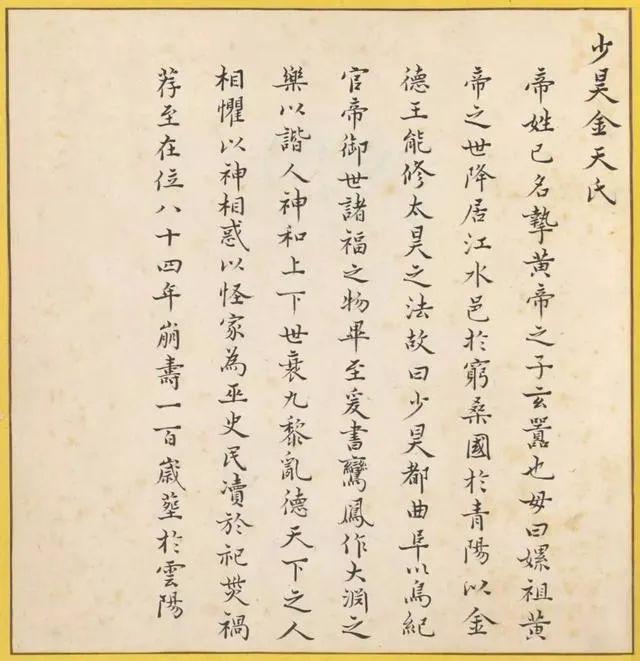 少昊金天氏
帝姓已名摯黃帝之子玄囂也母曰嫘祖黃
帝之世降居江水邑於窮桑國於青陽以金
德王能修太昊之法故曰少昊都曲阜以鳥紀
官帝御世諸福之物畢至爰書鸞鳳作大淵之
樂以諧人神和上下世衰九黎亂德天下之人
相懼以神相惑以怪家為巫史民瀆於祀災禍
荐至在位八十四年崩壽一百歲塟於雲陽